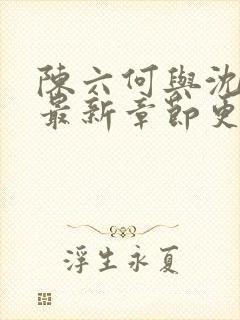 陳六何與沈
最新章節更
浮生永夏